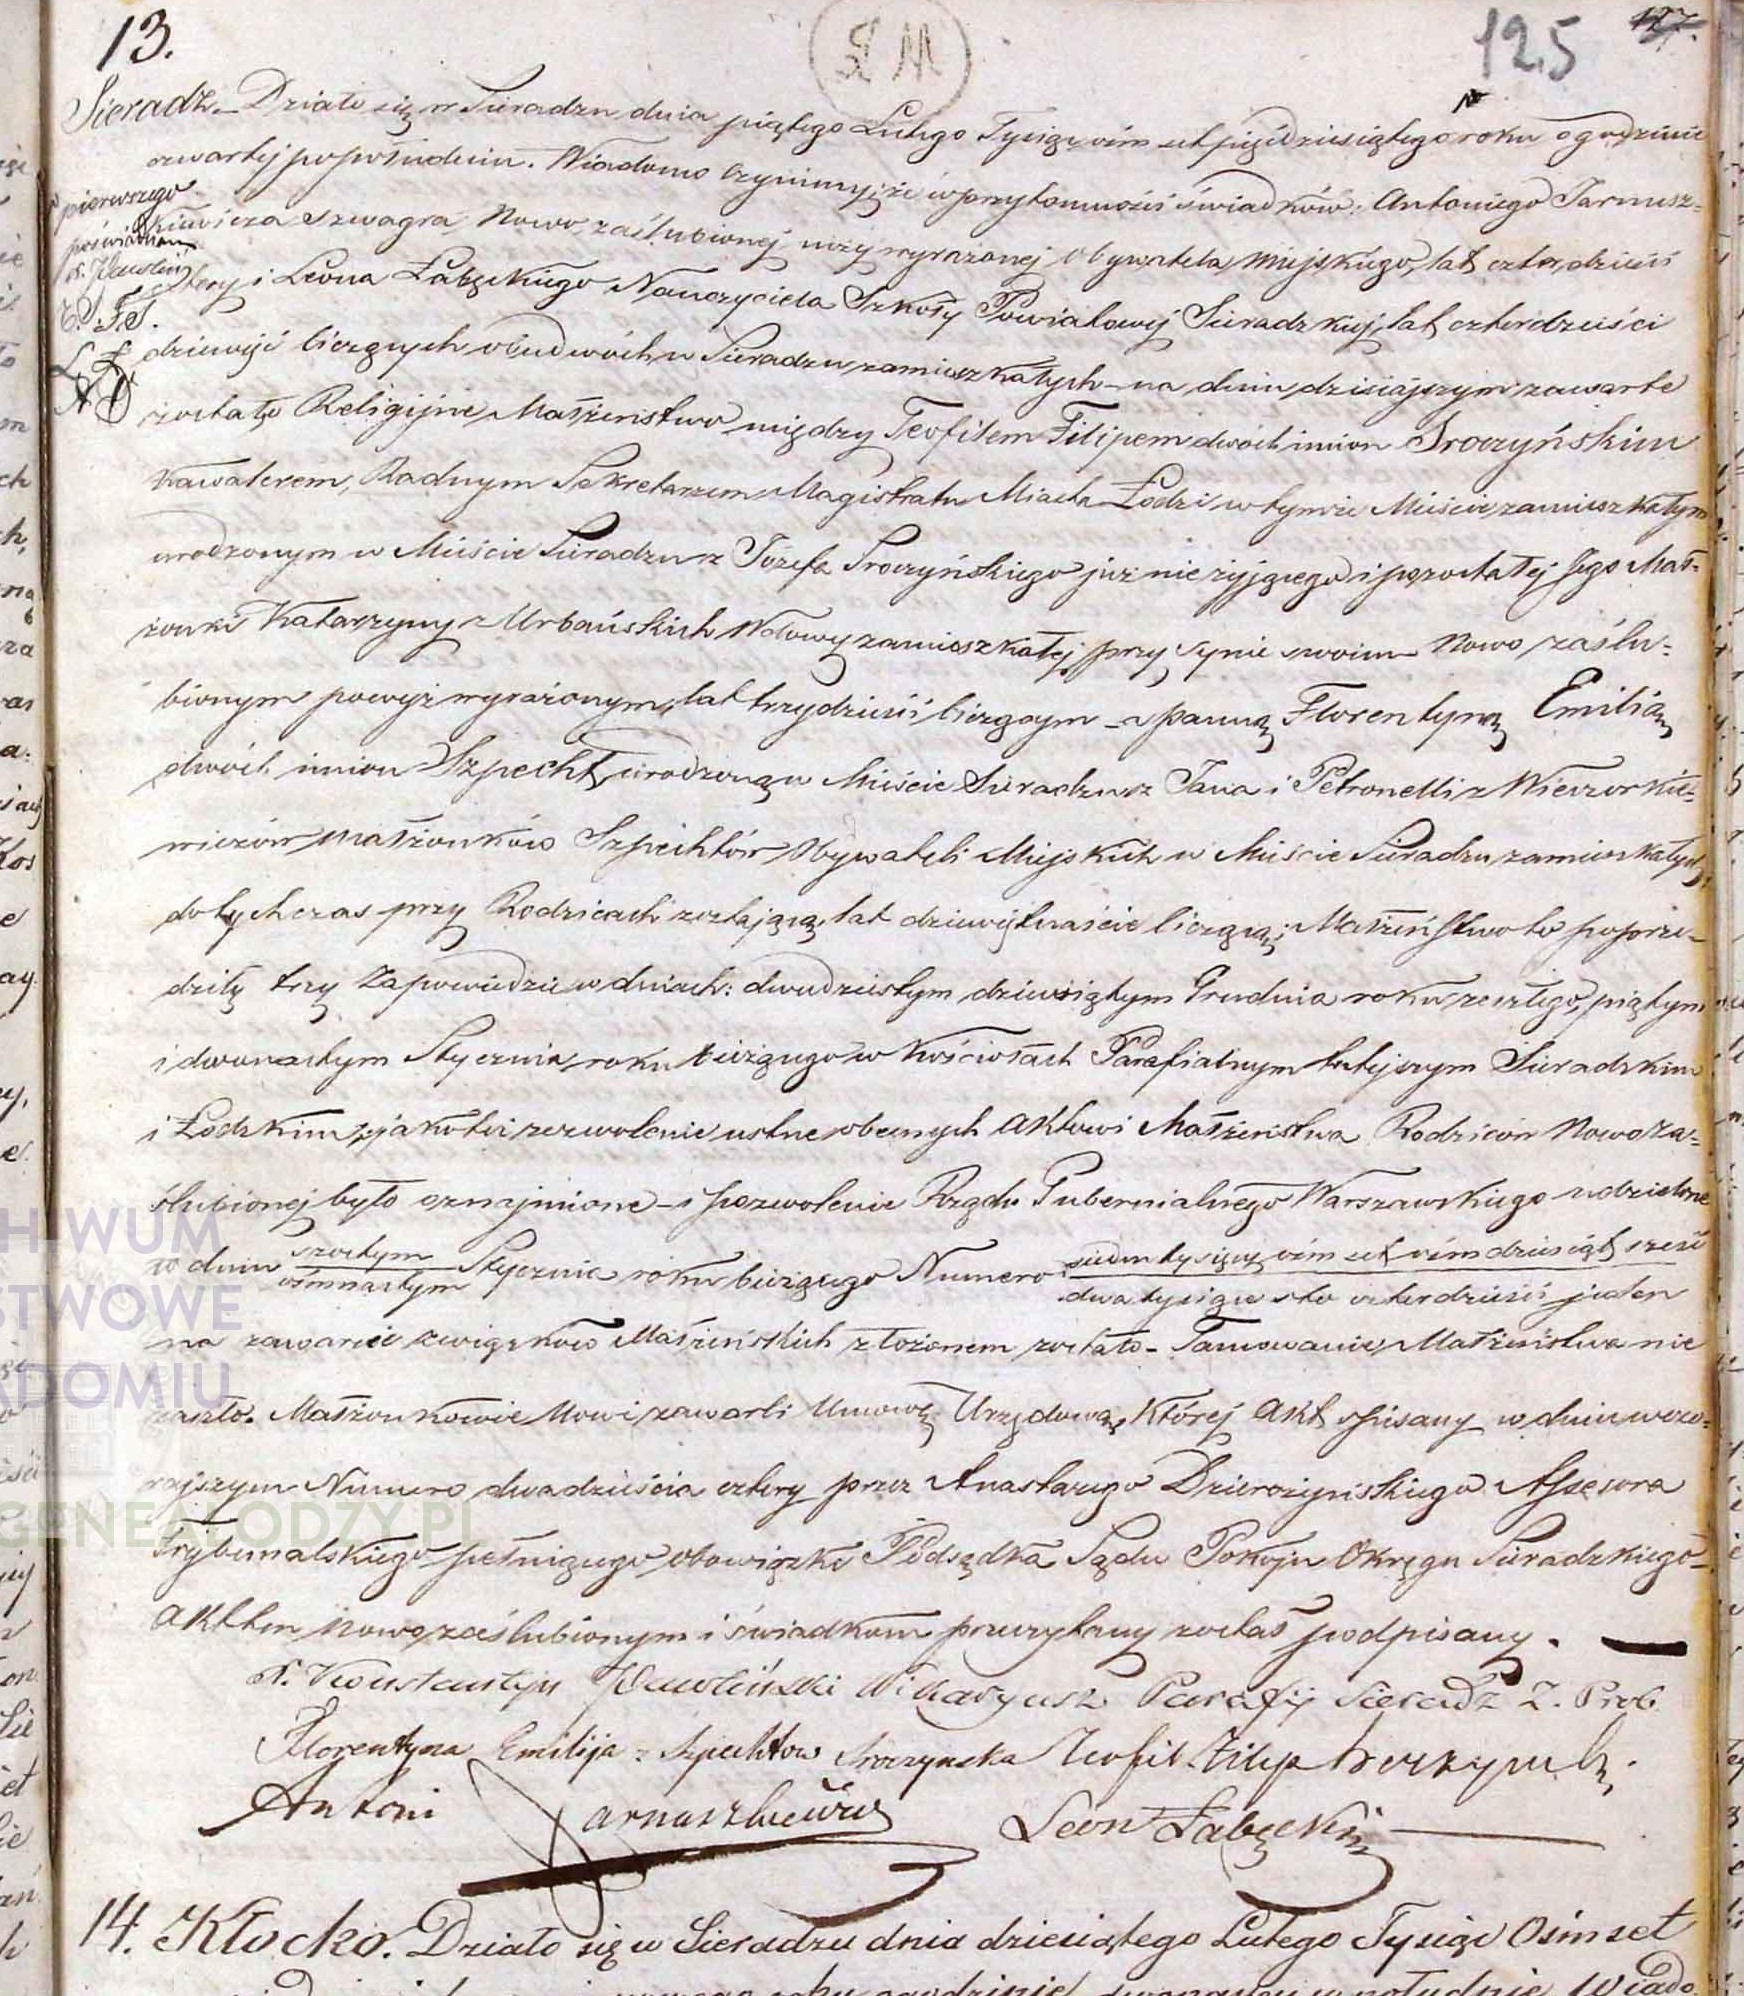 13.
125
127.
Sieradz. Działo się w Sieradzu dnia piątego Lutego Tysiąc ośmset pięćdziesiątego roku o godzinie
czwartej popołudniu. Wiadomo czynimy, że w przytomności świadków: Antoniego Jarnusz=
pierwszego
poświadczam
X. Pawliń
kiewicza szwagra Nowo zaślubionej niżej wyrażonej obywatela miejskiego, lat czterdzieści
cztery i Leona Łabęckiego Nauczyciela Szkoły Powiatowej Sieradzkiej, lat czterdzieści
T. F. S.
dziewięć liczących obudwóch w Sieradzu zamieszkałych – na dniu dzisiejszym zawarte
zostało Religijne Małżeństwo między Teofilem Filipem dwóch imion Sroczyńskim
Kawalerem, Radnym Sekretarzem Magistratu Miasta Łodzi w tymże Mieście zamieszkałym
urodzonym w Mieście Sieradzu z Józefa Sroczyńskiego już nie żyjącego i pozostałej Jego Mał=
żonki Katarzyny z Urbańskich Wdowy zamieszkałej przy synie swoim Nowo zaślu=
bionym powyż wyrażonym, lat trzydzieści liczącym – a panną Florentyną Emilią
dwóch imion Szpecht, urodzoną w Mieście Sieradzu z Jana i Petronelli z Wieczorkie=
wiczów małżonków Szpechtów Obywateli Miejskich w Mieście Sieradzu zamieszkałych,
dotychczas przy Rodzicach zostającą, lat dziewiętnaście liczącą; Małżeństwo to poprze=
dziły trzy Zapowiedzie w dniach: dwudziestym dziewiątym Grudnia roku zeszłego, piątym
i dwunastym Stycznia roku bieżącego w Kościołach Parafialnym tutejszym Sieradzkim
i Łodzkim, jakoteż zezwolenie ustne obecnych aktowi Małżeństwa Rodziców Nowo za=
ślubionej było oznajmione – i pozwolenie Rządu Gubernialnego Warszawskiego udzielone
w dniu szóstym Stycznia roku bieżącego Numero siedm tysięcy ośm set ośmdziesiąt sześć
ośmnastym dwa tysiące sto czterdzieści jeden
na zawarcie związków Małżeńskich złożonem zostało – Tamowanie Małżeństwa nie
zaszło. Małżonkowie Nowi zawarli Umowę Urzędową, której akt spisany w dniu wczo=
rajszym Numero dwadzieścia cztery przez Anastazego Dzierożyńskiego Assesora
Trybunalskiego pełniącego obowiązki Podsędka Sądu Pokoju Okręgu Sieradzkiego –
Akt ten nowo zaślubionym i świadkom przeczytany został podpisany.
X. Konstantyn Pawliński Wikaryusz Parafij Sieradz Z. Prob.
Florentyna Emilija z Szpechtow Sroczynska Teofil Filip Sroczyński.
Antoni Jarnuszkiewicz Leon Łabęcki
14. Kłocko. Działo się w Sieradzu dnia dziesiątego Lutego Tysiąc Ośmset
roku o godzinie dwunastej w południe Wiado
GENEALODZY.PL